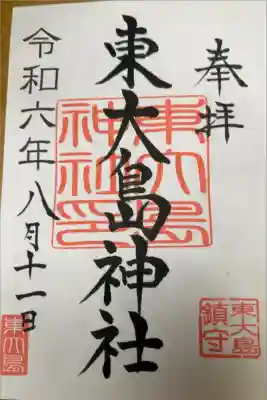 奉拝
東大島神社
令和六年八月十一日
東大島
神社印
東大島
鎮守
東大島